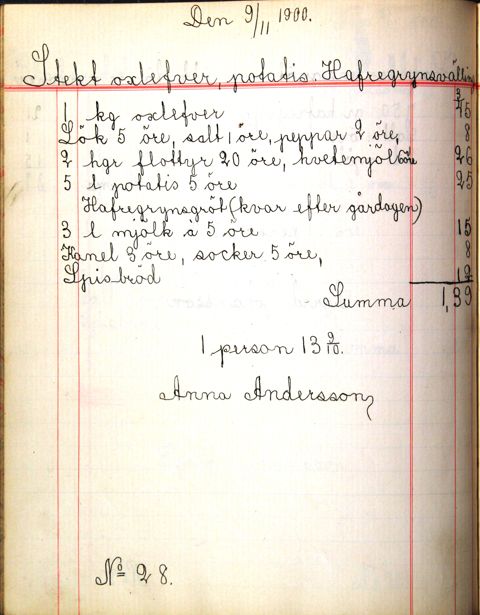 Den 9/11 1900.
Stekt oxlefver, potatis. Hafregrynsvälling
1 kg oxlefver 45
Lök 5 öre, salt 1 öre, peppar 2 öre, 8
2 hgr flottyr 20 öre, hvetemjöl 6 öre 26
5 l potatis 5 öre 25
Hafregrynsgröt (kvar efter gårdagen)
3 l mjölk à 5 öre 15
Kanel 3 öre, socker 5 öre, 8
Spisbröd 12
Summa 1,39
1 person 13 9/10.
Anna Andersson
No 28.